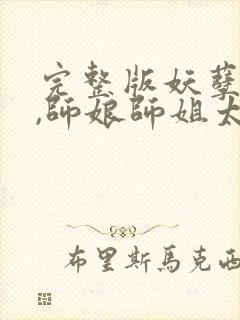 完整版妖孽
,師娘師姐太
布里斯馬克西